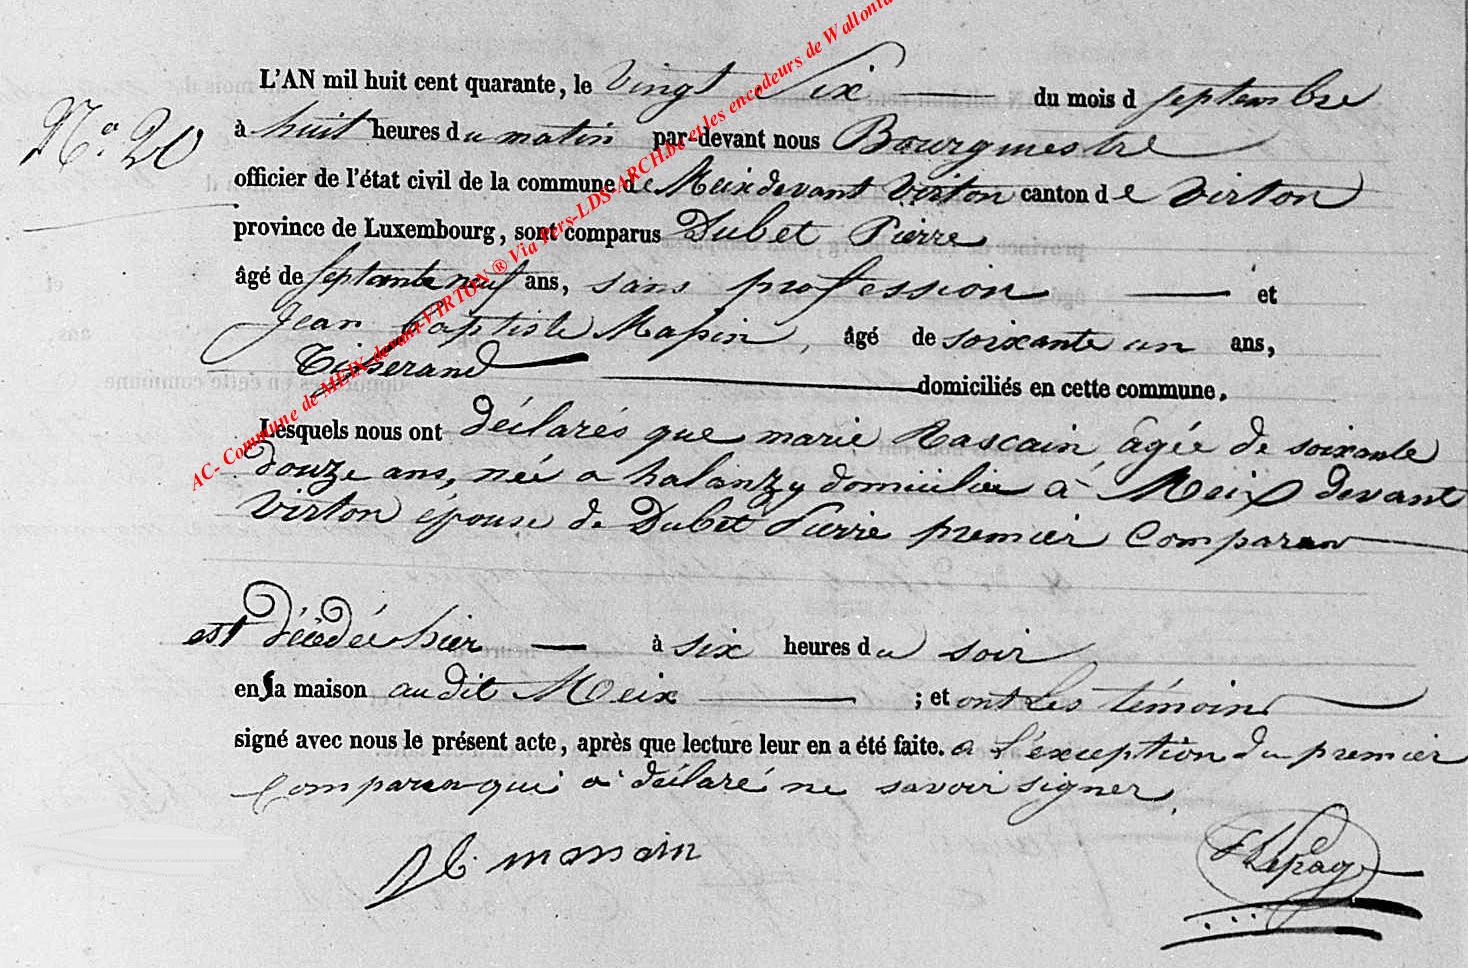 N.° 20
L'AN mil huit cent quarante, le Vingt Six du mois d septembre
à huit heures du matin par-devant nous Bourgmestre
officier de l'état civil de la commune de Meix devant Virton canton de Virton
province de Luxembourg, sont comparus Dubet Pierre
âgé de septante neuf ans, sans profession et
Jean Baptiste Massin, âgé de soixante un ans,
Tisserand domiciliés en cette commune.
Lesquels nous ont déclarés que marie Rascain âgée de soixante
douze ans, née a halanzy domiciliée à Meix devant
Virton épouse de Dubet Pierre premier Comparan
est décédée hier à six heures du soir
en sa maison au dit Meix ; et ont Les témoins
signé avec nous le présent acte, après que lecture leur en a été faite. a L'exception du premier
Comparan qui a déclaré ne savoir signer.
massin
Lepage
AC- Commune de MEIX-devant-VIRTON ® Via Pers-LDS-ARCH.be et les encodeurs de Wallonie